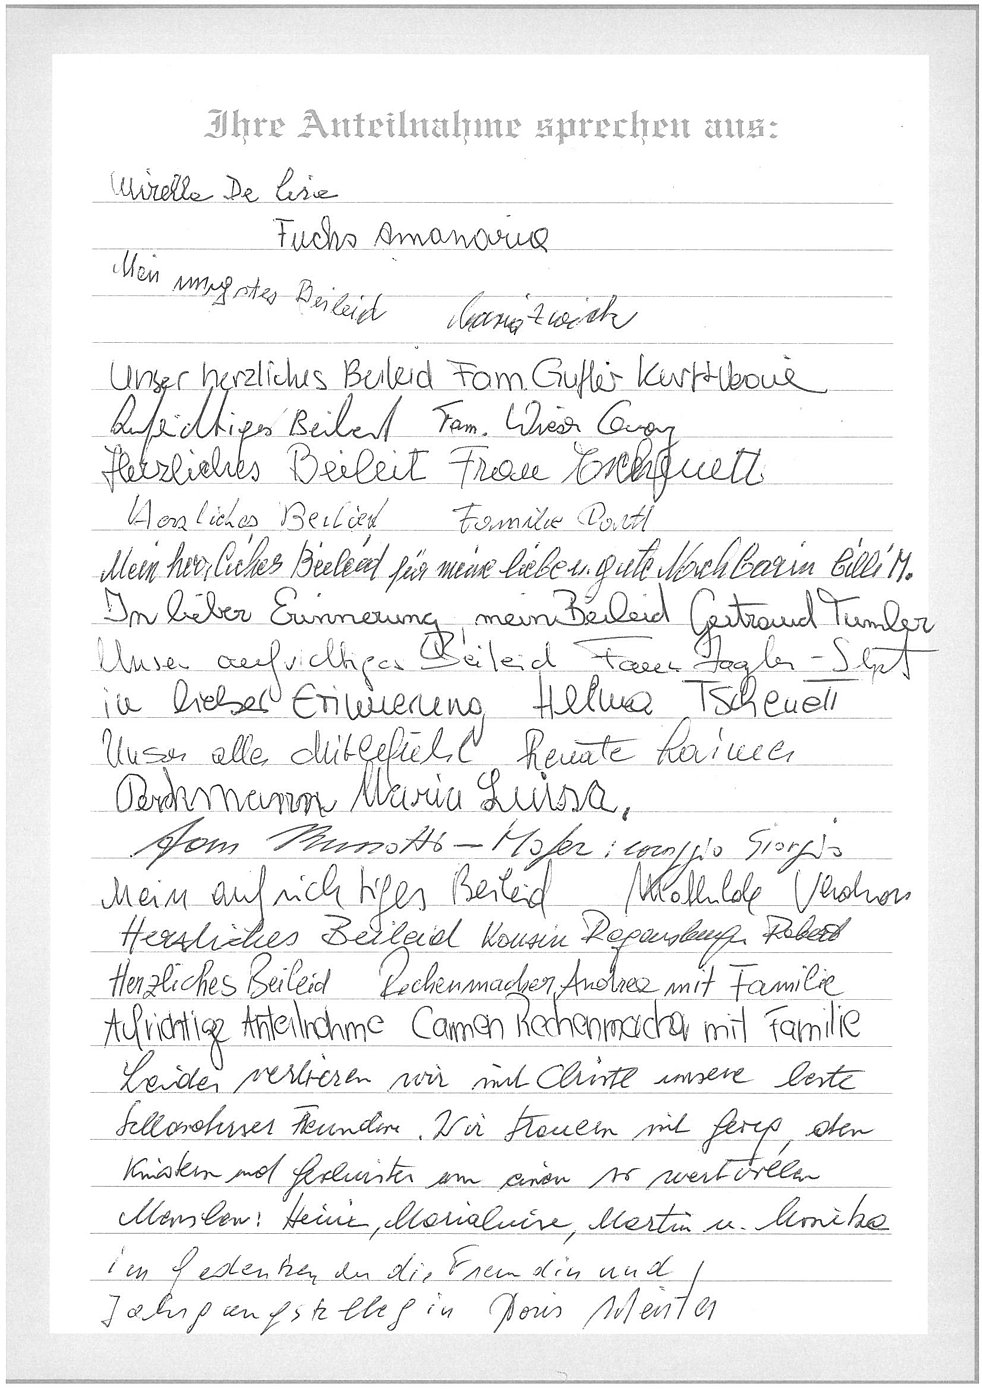 Ihre Anteilnahme sprechen aus:
Mirella De
Fuchs Annamaria
Mein innigstes Beileid
Unser herzliches Beileid Fam. Gufler Kurt +
Aufrichtiges Beileid Fam. Wieser
Herzliches Beileit Frau
Herzliches Beileid Familie
Mein herzliches Beileid für meine liebe u. gute Nachbarin Cilli M.
In lieber Erinnerung mein Beileid Gertraud Tumler
Unser aufrichtiges Beileid Fam.
in lieber Erinnerung Helma Tschenett
Unser alle Mitgefühl Renate Rainer
Maria Luisa,
Fam - Moser: Giorgio
Mein aufrichtiges Beileid Mathilde
Herzliches Beileid Kousin Regensburger Robert
Herzliches Beileid Rechenmacher Andrea mit Familie
Aufrichtige Anteilnahme Carmen Rechenmacher mit Familie
Leider verlieren wir mit Christl unsere beste
Freundin. Wir trauern mit den
Kindern und Geschwister um einen so wertvollen
Menschen: Heinz, Marialuise, Martin u. Monika
im Gedenken an die Freundin und
Jahrgangskollegin Doris